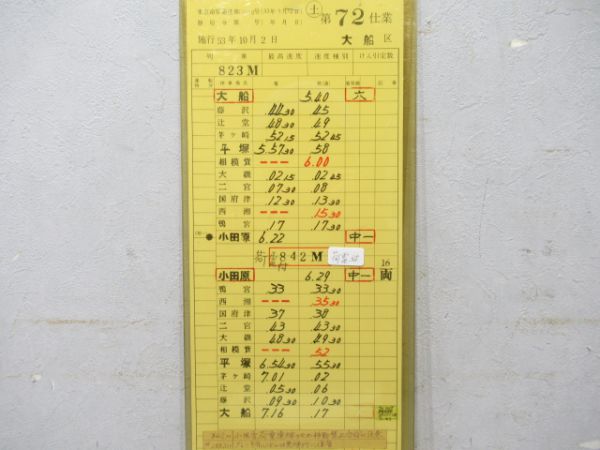 土 第72仕業
施行 53年10月2日 大船 区
列車 最高速度 速度種別 けん引定数
823M
大船 5.40 六
藤沢 .44 30 .45
辻堂 .48 30 .49
茅ヶ崎 .52 15 .52 45
平塚 5.57 30 .58
相模貨 --- 6.00
大磯 .02 15 .02 45
二宮 .07 30 .08
国府津 .12 30 .13 30
西湘 --- .15 30
鴨宮 .17 .17 30
小田原 6.22 中一
842M
16両
小田原 6.29 中一
鴨宮 .33 .33 30
西湘 --- .35 30
国府津 .37 .38
二宮 .43 .43 30
大磯 .48 30 .49 30
相模貨 --- .52
平塚 6.54 30 .55 30
茅ヶ崎 7.01 .02
辻堂 .05 30 .06
藤沢 .09 30 .10 30
大船 7.16 .17